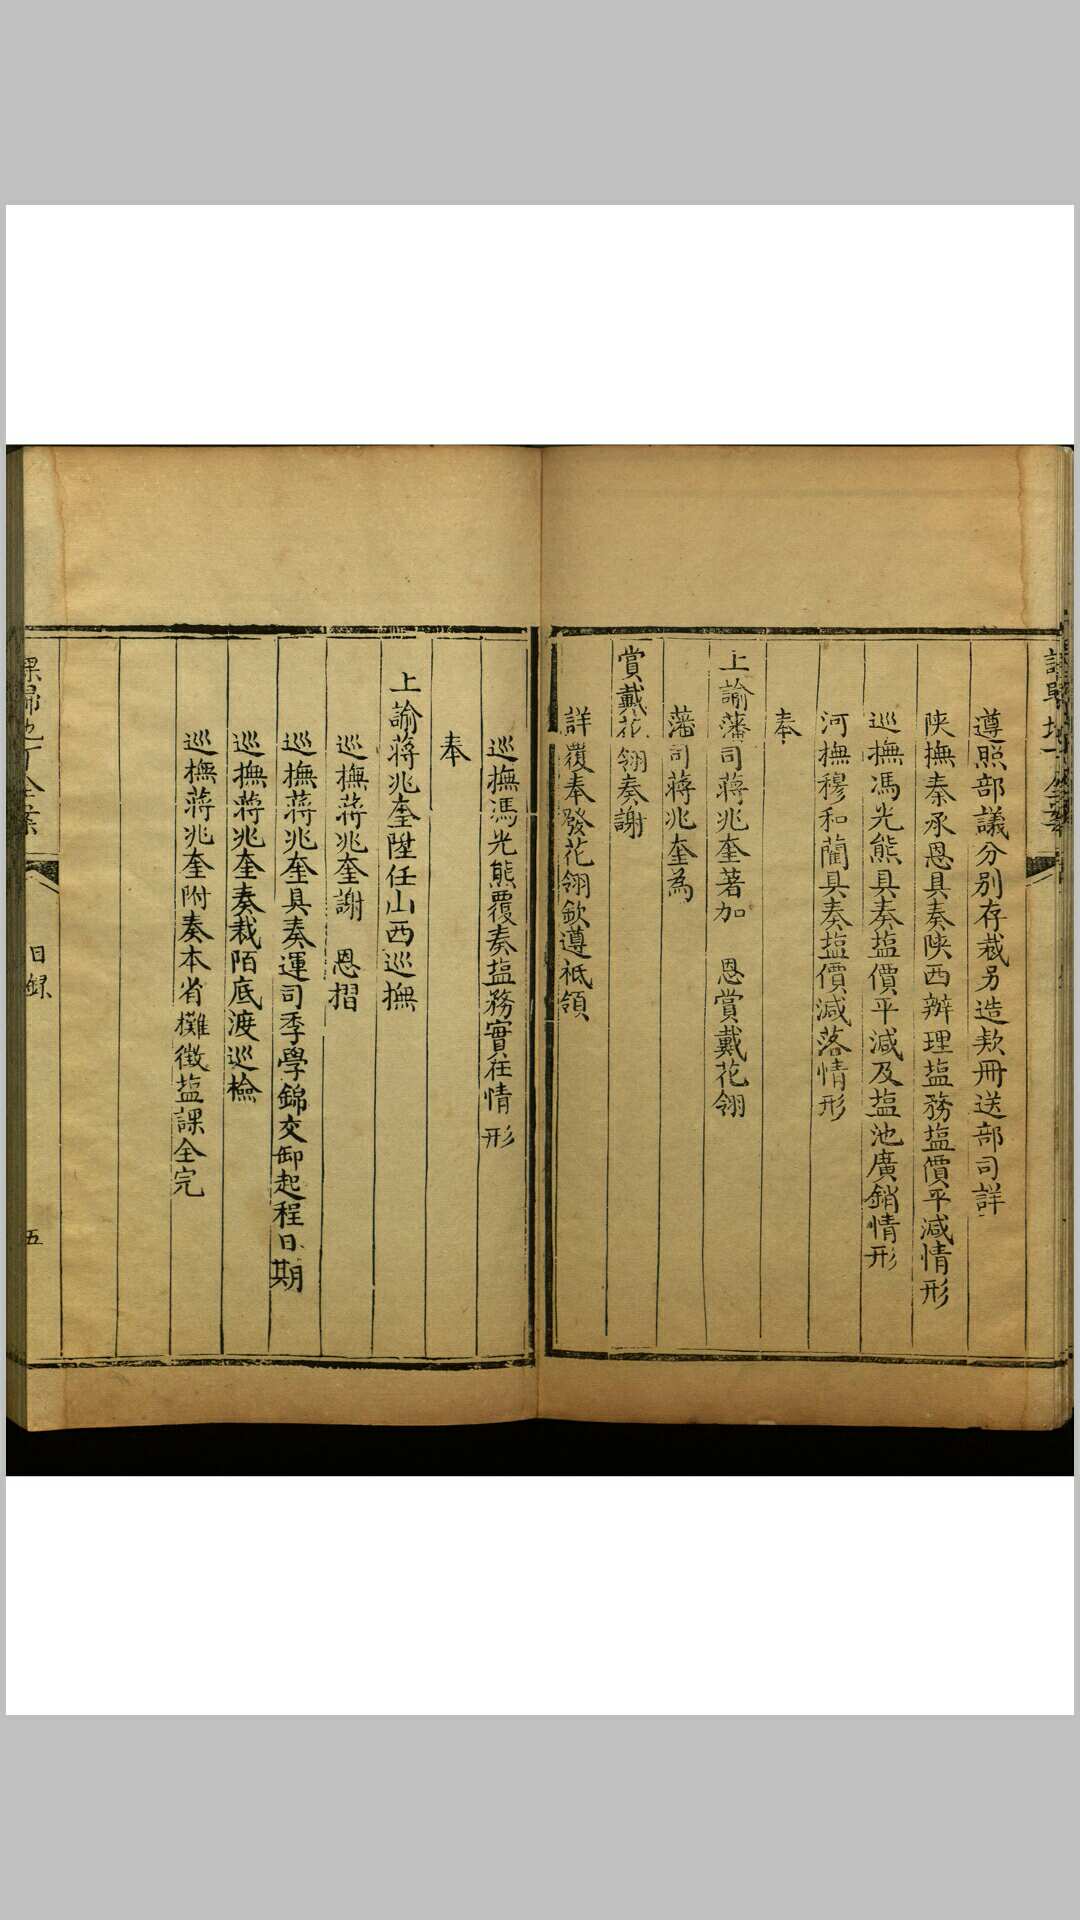 遵照部議分別存裁另造欵冊送部司詳
陝撫秦承恩具奏陝西辦理塩務塩價平減情形
巡撫馮光熊具奏塩價平減及塩池廣銷情形
河撫穆和藺具奏塩價減落情形
奉
上諭藩司蔣兆奎著加　恩賞戴花翎
藩司蔣兆奎為
賞戴花翎奏謝
詳覆奉發花翎欽遵祗領
巡撫馮光熊覆奏塩務實在情形
奉
上諭蔣兆奎陞任山西巡撫
巡撫蔣兆奎謝　恩摺
巡撫蔣兆奎具奏運司季學錦交卸起程日期
巡撫蔣兆奎奏裁陌底渡巡檢
巡撫蔣兆奎附奏本省攤徵塩課全完
課歸地丁全案
目録
五